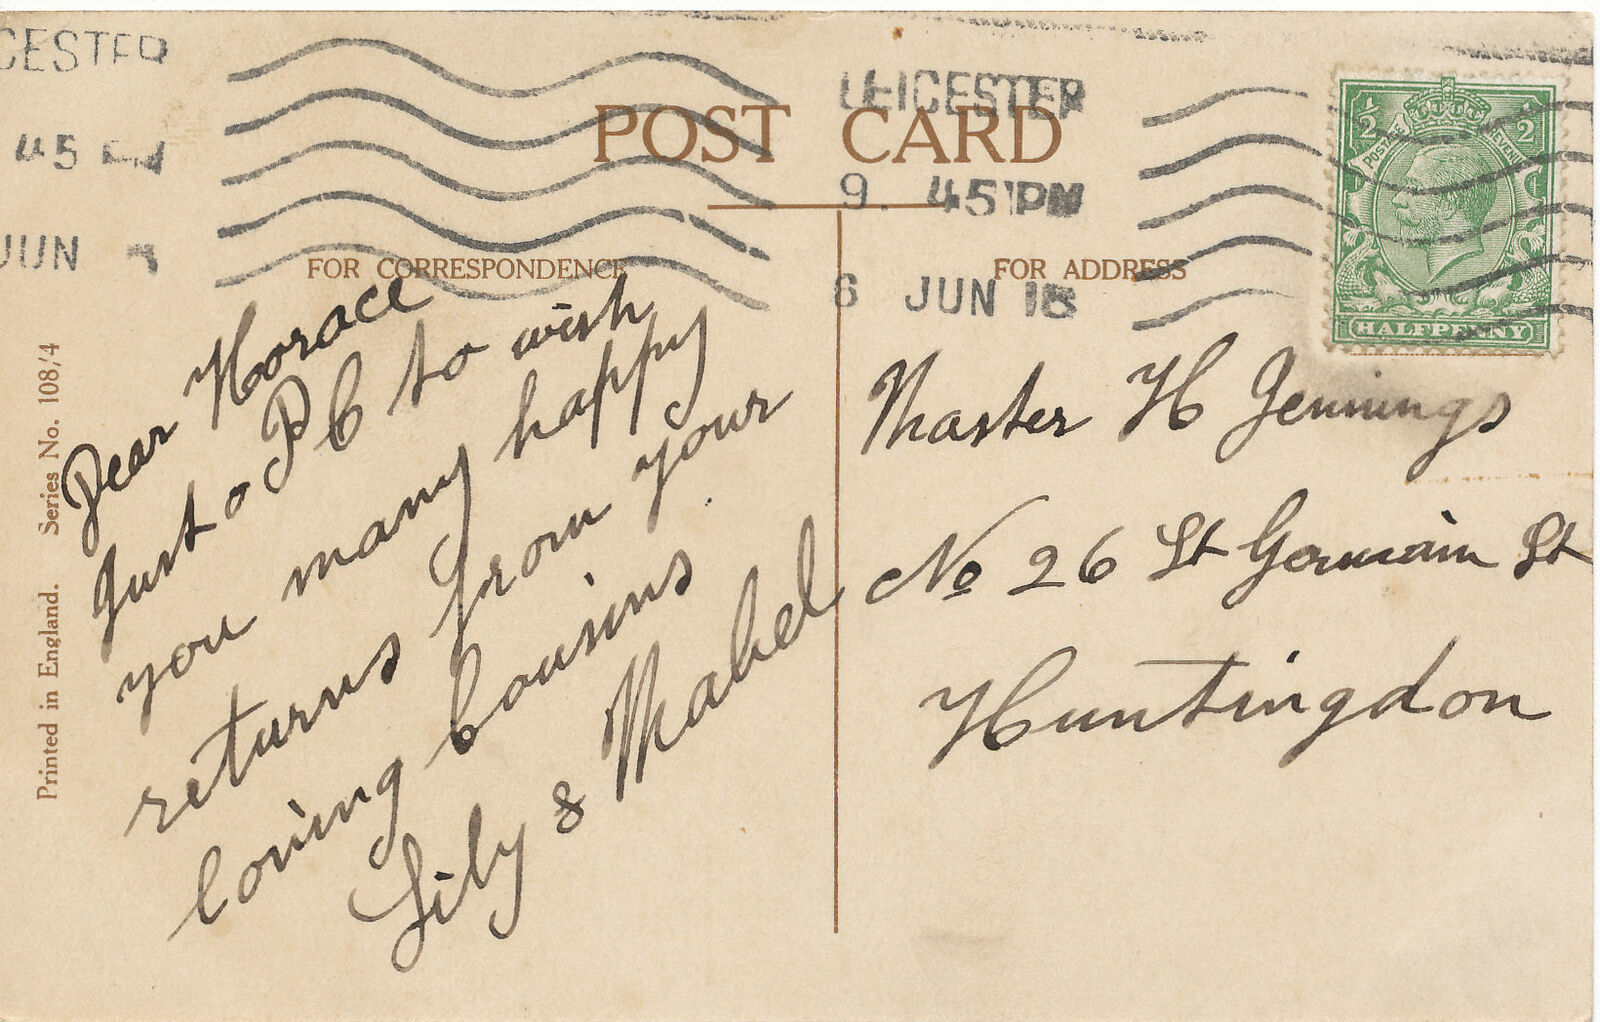 CESTER
45 PM
JUN
LEICESTER
9. 45 PM
6 JUN 18
POST CARD
FOR CORRESPONDENCE
FOR ADDRESS
1/2 1/2
POSTAGE REVENUE
HALFPENNY
Printed in England. Series No. 108/4
Dear Horace
Just a PC to wish
you many happy
returns from your
loving Cousins
Lily & Mabel
Master H Jennings
No 26 St Germain St
Huntingdon